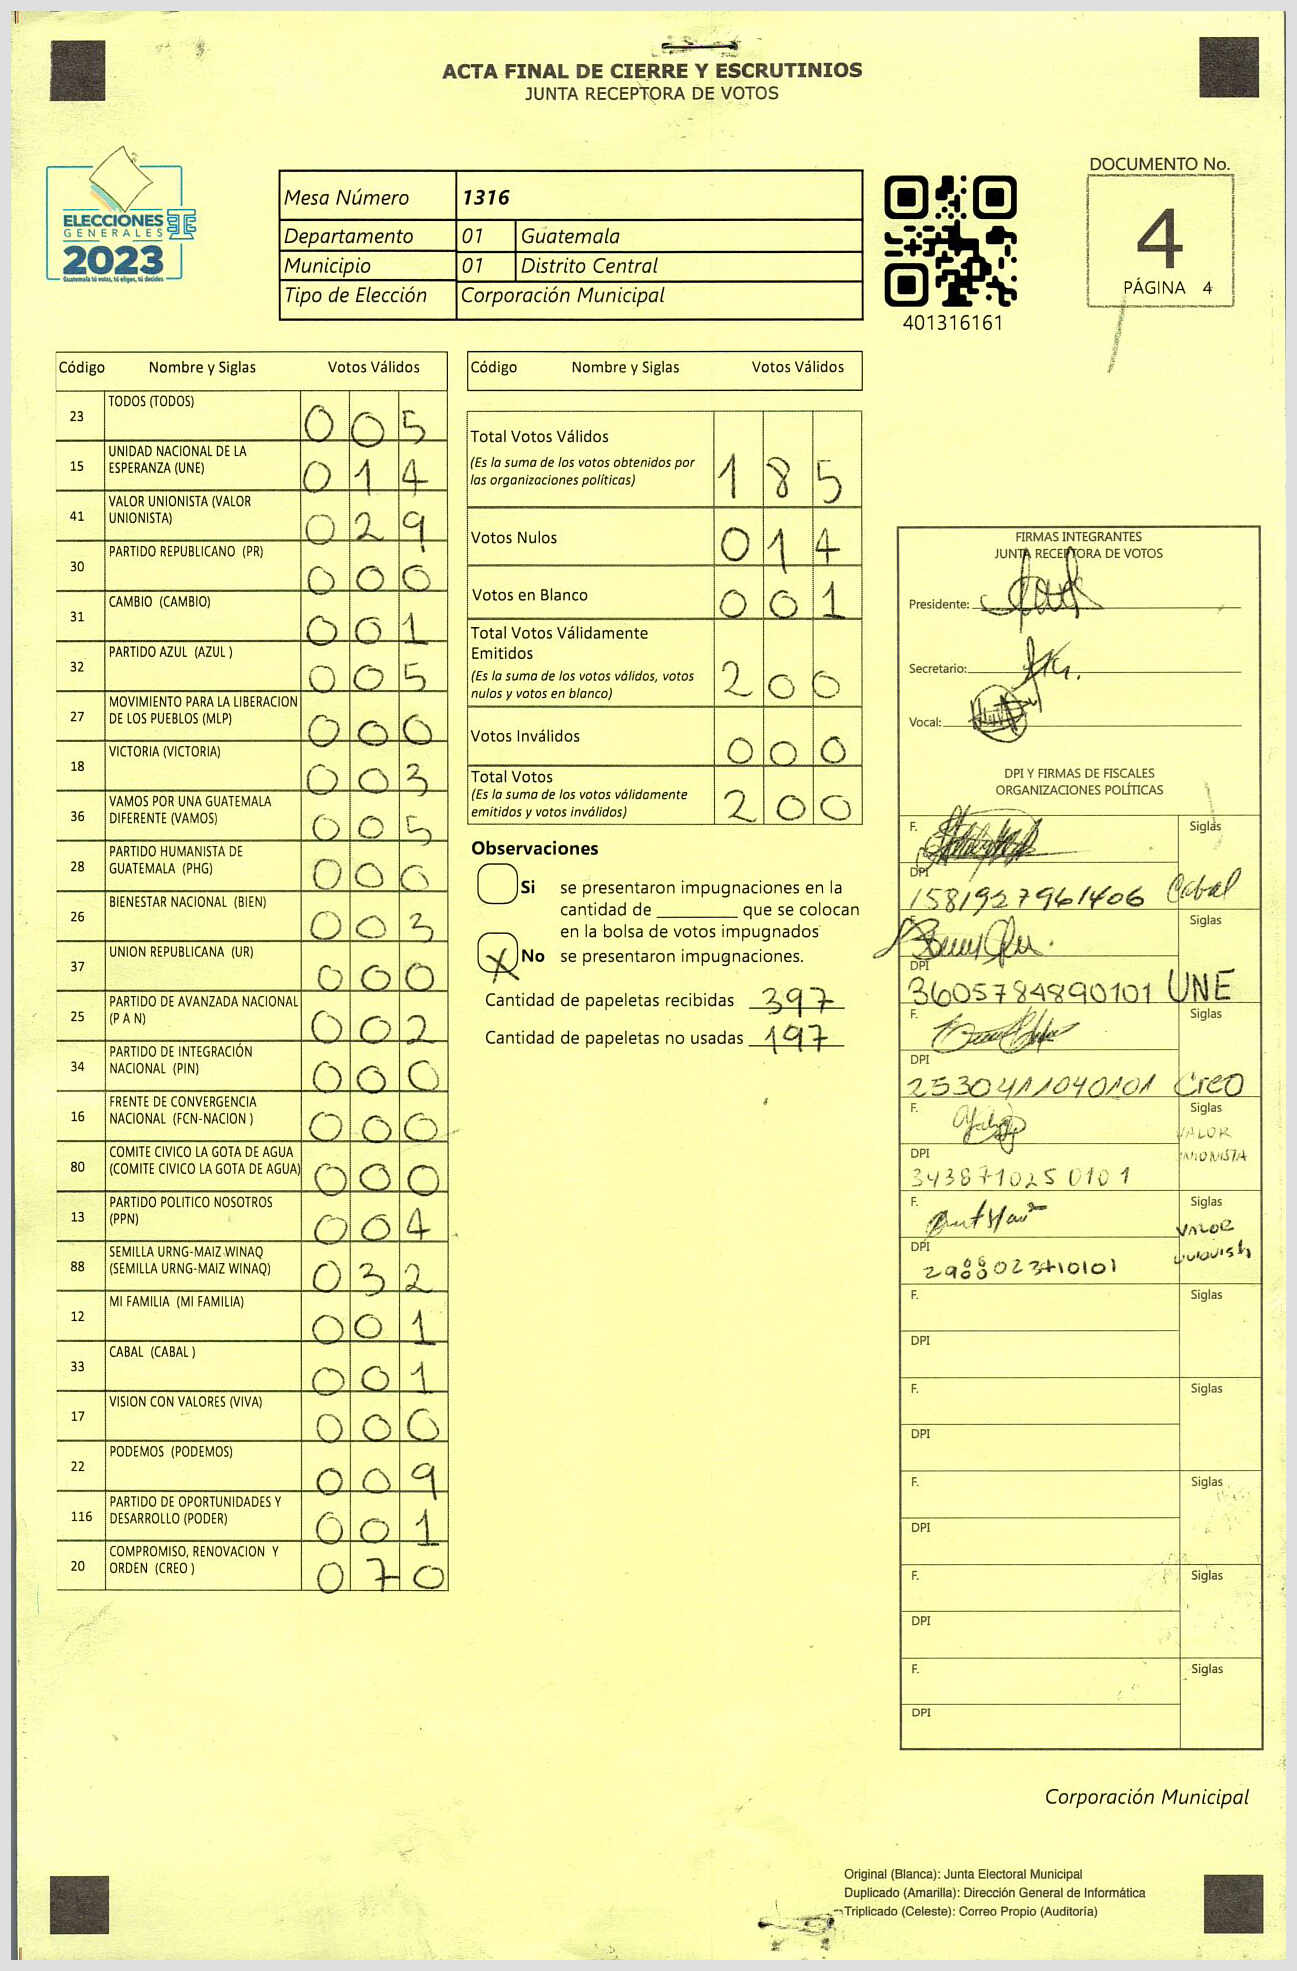 ACTA FINAL DE CIERRE Y ESCRUTINIOS
JUNTA RECEPTORA DE VOTOS
ELECCIONES
GENERALES
2023
Guatemala tú votas, tú eliges, tú decides
Mesa Número 1316
Departamento 01 Guatemala
Municipio 01 Distrito Central
Tipo de Elección Corporación Municipal
401316161
DOCUMENTO No.
4
PÁGINA 4
Código Nombre y Siglas Votos Válidos
23 TODOS (TODOS) 0 0 5
15 UNIDAD NACIONAL DE LA
ESPERANZA (UNE) 0 1 4
41 VALOR UNIONISTA (VALOR
UNIONISTA) 0 2 9
30 PARTIDO REPUBLICANO (PR) 0 0 0
31 CAMBIO (CAMBIO) 0 0 1
32 PARTIDO AZUL (AZUL ) 0 0 5
27 MOVIMIENTO PARA LA LIBERACION
DE LOS PUEBLOS (MLP) 0 0 0
18 VICTORIA (VICTORIA) 0 0 3
36 VAMOS POR UNA GUATEMALA
DIFERENTE (VAMOS) 0 0 5
28 PARTIDO HUMANISTA DE
GUATEMALA (PHG) 0 0 0
26 BIENESTAR NACIONAL (BIEN) 0 0 3
37 UNION REPUBLICANA (UR) 0 0 0
25 PARTIDO DE AVANZADA NACIONAL
(P A N) 0 0 2
34 PARTIDO DE INTEGRACIÓN
NACIONAL (PIN) 0 0 0
16 FRENTE DE CONVERGENCIA
NACIONAL (FCN-NACION ) 0 0 0
80 COMITE CIVICO LA GOTA DE AGUA
(COMITE CIVICO LA GOTA DE AGUA) 0 0 0
13 PARTIDO POLITICO NOSOTROS
(PPN) 0 0 4
88 SEMILLA URNG-MAIZ WINAQ
(SEMILLA URNG-MAIZ WINAQ) 0 3 2
12 MI FAMILIA (MI FAMILIA) 0 0 1
33 CABAL (CABAL ) 0 0 1
17 VISION CON VALORES (VIVA) 0 0 0
22 PODEMOS (PODEMOS) 0 0 9
116 PARTIDO DE OPORTUNIDADES Y
DESARROLLO (PODER) 0 0 1
20 COMPROMISO, RENOVACION Y
ORDEN (CREO ) 0 7 0
Código Nombre y Siglas Votos Válidos
Total Votos Válidos
(Es la suma de los votos obtenidos por
las organizaciones políticas) 1 8 5
Votos Nulos 0 1 4
Votos en Blanco 0 0 1
Total Votos Válidamente
Emitidos
(Es la suma de los votos válidos, votos
nulos y votos en blanco) 2 0 0
Votos Inválidos 0 0 0
Total Votos
(Es la suma de los votos válidamente
emitidos y votos inválidos) 2 0 0
Observaciones
Si se presentaron impugnaciones en la
cantidad de ________ que se colocan
en la bolsa de votos impugnados
X No se presentaron impugnaciones.
Cantidad de papeletas recibidas 397
Cantidad de papeletas no usadas 197
FIRMAS INTEGRANTES
JUNTA RECEPTORA DE VOTOS
Presidente:
Secretario:
Vocal:
DPI Y FIRMAS DE FISCALES
ORGANIZACIONES POLÍTICAS
F. Siglas
DPI
1581927961406 Cabal
F. Siglas
DPI
3605784890101 UNE
F. Siglas
DPI
2530411040101 Creo
F. Siglas
VALOR
UNIONISTA
DPI
3438710250101
F. Siglas
VALOR
DPI
F. Siglas
DPI
F. Siglas
DPI
F. Siglas
DPI
F. Siglas
DPI
F. Siglas
DPI
Corporación Municipal
Original (Blanca): Junta Electoral Municipal
Duplicado (Amarilla): Dirección General de Informática
Triplicado (Celeste): Correo Propio (Auditoría)